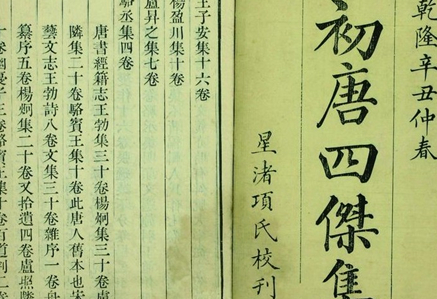 乾隆辛丑仲春
初唐四傑集
星渚項氏校刊
王子安集十六卷
楊盈川集十卷
盧昇之集七卷
駱丞集四卷
唐書經籍志王勃集三十卷楊炯集三十卷盧
隣集二十卷駱賓王集十卷此唐人舊本也宋
藝文志王勃詩八卷文集三十卷雜序一卷舟
纂序五卷楊炯集二十卷又拾遺四卷盧照隣
十卷幽憂子三卷駱賓王集十卷百道判二卷